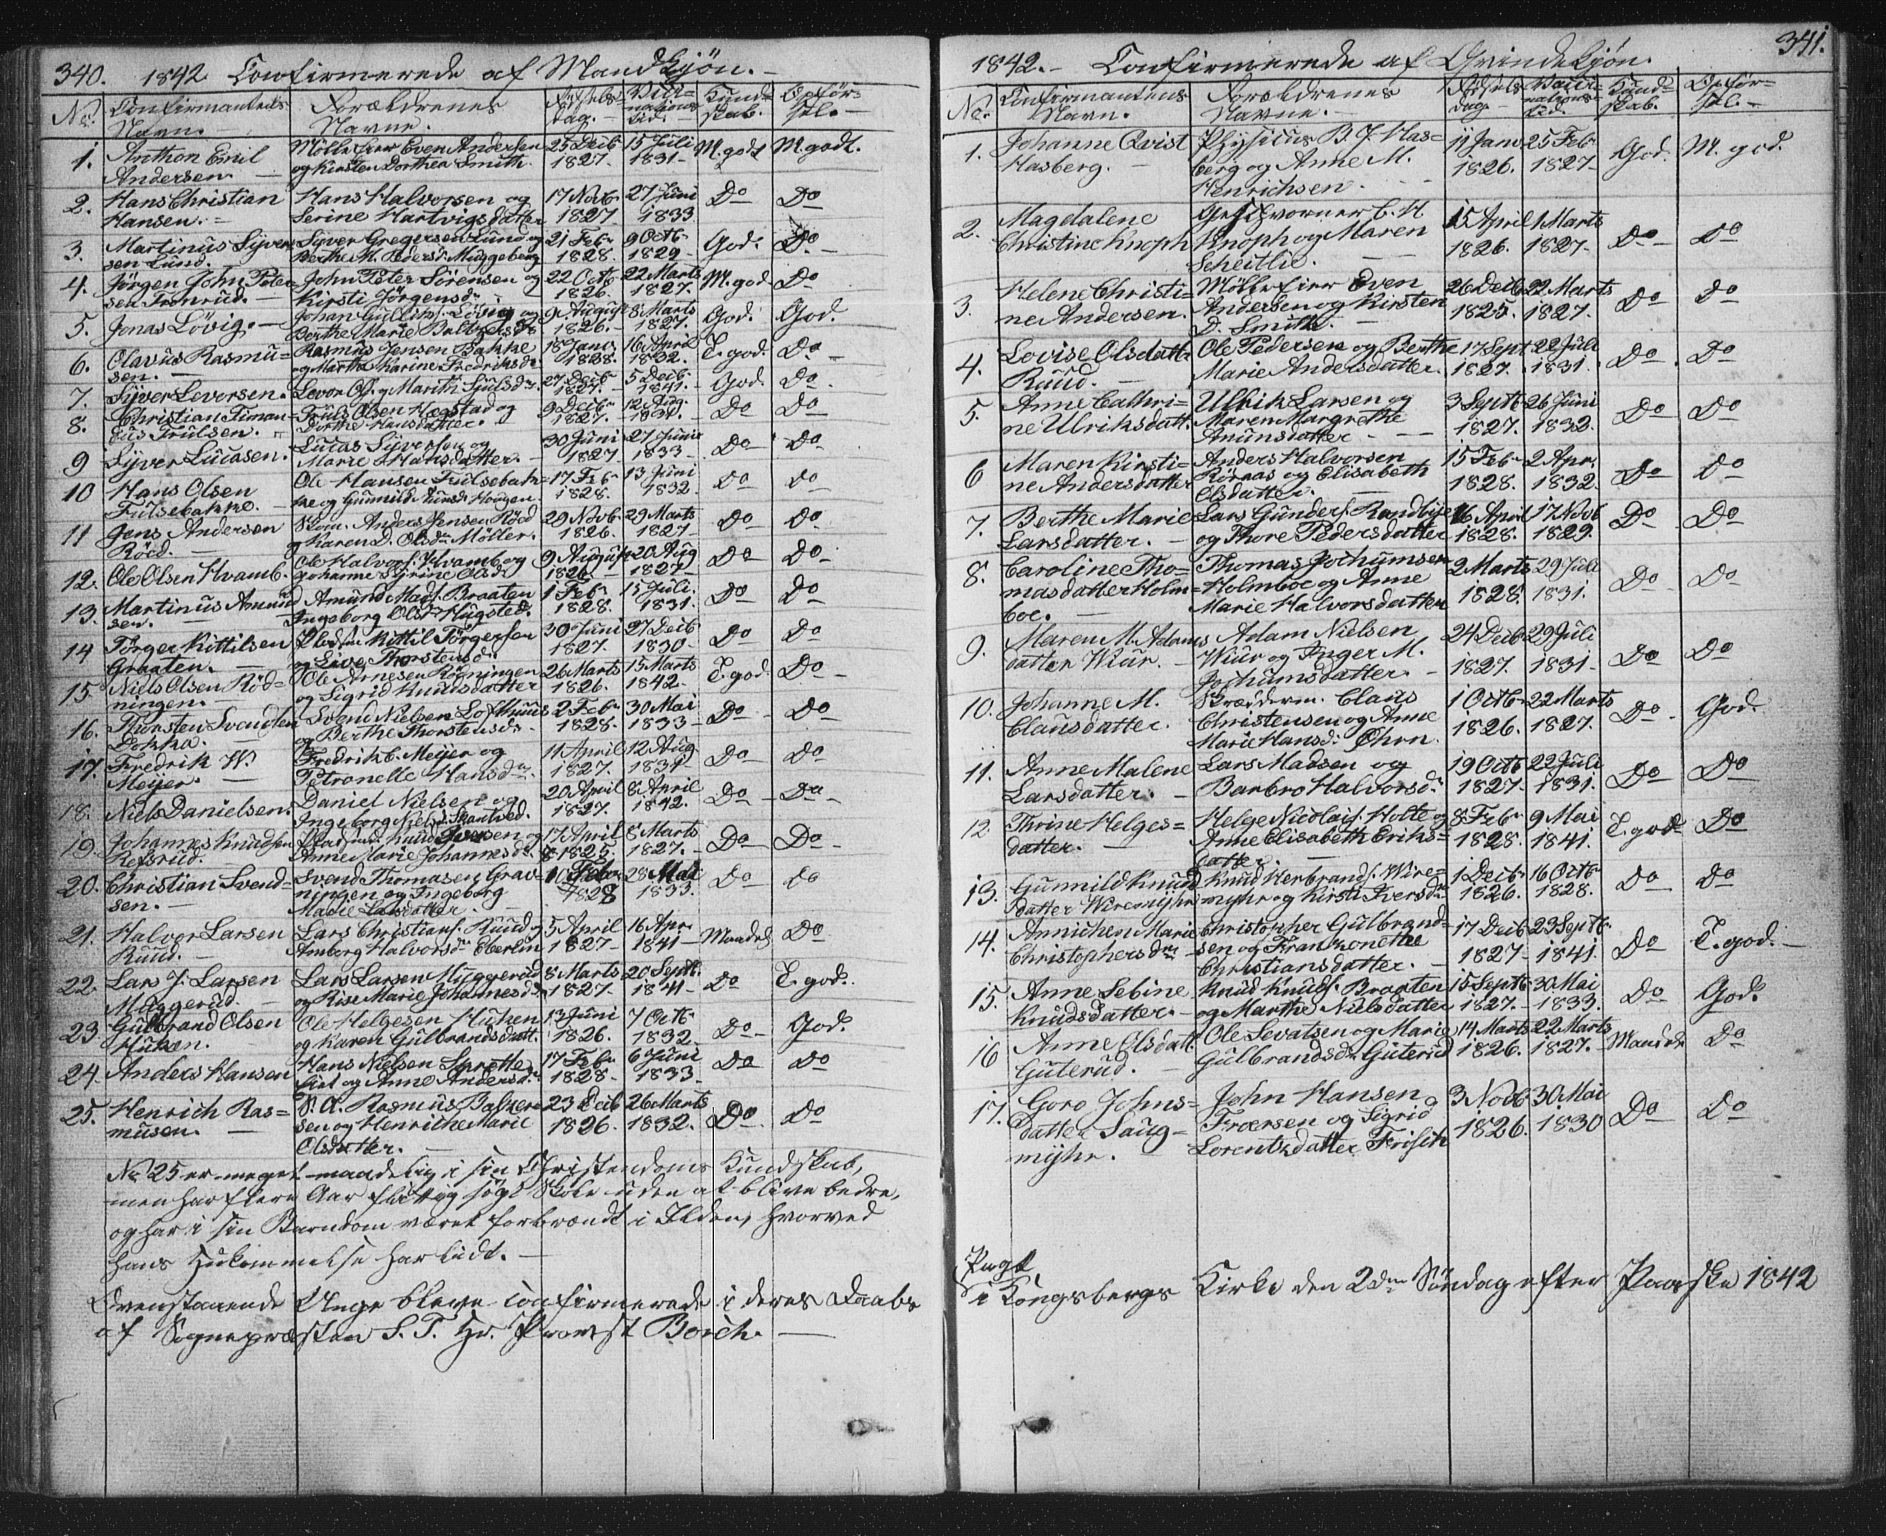 340. 1842 Confirmerede af Mandkjøn. —
No. Confirmantens Navn. Forældrenes Navne. Fødsels- dag. Vacci- nations tid. Kund- skab. Opfør- sel. —
1. Anthon Emil Andersen. — Møllefier Even Andersen og Kirsten Dorthea Smith. 25 Decb 1827. 15 Juli 1831. M. godt M. godt.
2. Hans Christian Hansen. — Hans Halvorsen og Serine Hartvigsdatter 17 Novb 1827 27 Juni 1833 Do Do
3. Martinus Syver- sen Lund. Syver Gregersen Lund og Berthe M. Pedersd. Muggeberg 21 Feb. 1828. 9 Octb. 1829. God. Do
4. Jørgen John Peter- sen John Peter Sørensen og Kirsti Jørgensd. 22 Octb 1826. 22 Marts 1827. M. god Do
5. Jonas Løvig. — Johan Løvig og Berthe Marie 9 August 1826. 8 Marts 1827. God. God.
6. Olavus Rasmu- sen. — Rasmus Jensen Bakke og Martha Karine Fredriksdr 18 Janv. 1828. 16 April 1832. T. god. Do
7. Syver Leversen. Levor Ols. og Marith 27 Decb 1827. 5 Decb. 1841. God. Do.
8. Christian Timan- dus Trulsen. Truls Olsen Hægstad og Dorthe Hansdatter. 9 Decb 1827. 12 Aug. 1831. Do Do
9 Syver Lucasen. Lucas Syversen og Marie Hansdatter. 30 Juni 1827 27 Juni 1833. Do Do
10 Hans Olsen Fulsebakke. Ole Hansen Fulsebak- ke og Gunnild Hougen. 17 Feb. 1828. 13 Juni 1832. Do Do
11 Jens Andersen Røed. — Anders Jensen Røed og Karen D. Olsdr Møller. 29 Novb. 1826. 29 Marts 1827 Do Do
12. Ole Olsen Hvamb. Ole Halvors. Hvamb og Johanne Syrine Olsdr 9 August 1826. 20 Aug 1827 Do Do
13. Martinus Amund- sen. — Amund Mads. Braaten Ingeborg Olsdr Hugsted. 1 Feb. 1828. 15 Juli. 1831. Do Do
14 Tørger Kittilsen Graaten. — Kittil Tørgersen og Live Thorstensd. 30 Juni 1827. 27 Decb 1830. Do Do
15 Niels Olsen Rød- ningen. — Ole Arnesen Rødningen og Sigrid Knudsdatter 26 Marts 1826. 15 Marts 1842. T. god Do
16. Thorsten Svendsen Dokka. Svend Nielsen Lofthuus og Berthe Thorstensdr 2 Feb. 1828. 30 Mai 1833. Do Do
17. Fredrik W. Meijer. — Fredrik C. Meijer og Petronelle Hansdr. 11 April 1827. 12 Aug 1831 Do Do
18. Niels Danielsen. Daniel Nielsen og Ingeborg Nielsd. 20 April 1827. 8 April 1842. Do Do
19. Johannes Knudsen Refsrud. Knud Iversen og Anne Marie Johannesdr 17 April 1825. 8 Marts 1827. Do Do
20. Christian Svend- sen. — Svend Thomasen Grav- ningen og Ingeborg Marie Larsdatter. 10 Feb. 1828 28 Mai 1833. Do Do
21. Halvor Larsen Ruud. — Lars Christians. Ruud og Amborg Halvorsdr Eberlin 5 April 1827 16 Apr. 1841 Maadel. Do
22. Lars J. Larsen Muggerud. Lars Larsen Muggerud og Rise Marie Johannesdr 8 Marts 1827. 20 Septb. 1841 Do T. god.
23 Gulbrand Olsen Huken. Ole Helgesen Huken og Karen Gulbrandsdatt. 13 Juni 1826. 7 Octb. 1832. Do God.
24. Anders Hansen Hans Nielsen og Anne Andersdr 17 Feb. 1828. 6 Juni 1833. Do Do
25. Henrich Ras- musen. — S. A. Rasmus sen og Henriche Marie Olsdatter. 23 Decb 1826. 26 Marts 1832. Do Do
No 25 er meget maadelig i sin Christendoms Kundskab,
men har flere Aar flittig søgt Skole uden at blive bedre,
og har i sin Barndom været forbrændt i Ilden, hvorved
hans Hukommelse har lidt. —
Ovenstaaende Unge bleve confirmerede i deres Daabs
af Sognepræsten S. T. Hr. Provst Borch. —
1842. — Confirmerede af Qvindekjøn. 341.
No. Confirmantens Navn. Forældrenes Navne. Fødsels dag. Vacci- nations tid. Kund- skab. Opfør- sel. —
1. Johanne Qvist Hasberg. — Physicus B. J. Has- berg og Anne M. Henrichsen. 11 Janv 1826. 25 Feb 1827 God. M. god
2. Magdalene Christine Knoph Geschvorner C. H. Knoph og Maren Scheitlie. 15 April 1826. 1 Marts 1827. Do Do
3. Helene Christi- ne Andersen. Møllefier Even Andersen og Kirsten D. Smith. 26 Decb 1825. 22 Marts 1827. Do Do
4. Lovise Olsdatt. Ruud. — Ole Pedersen og Berthe Marie Andersdatter. 17 Sept. 1827. 22 Juli 1831. Do Do
5. Anne Cathri- ne Ulriksdatt. Ulrik Larsen og Maren Margrethe Amundsdatter 3 Septb 1827. 26 Juni 1832. Do Do
6 Maren Kirsti- ne Andersdatter Anders Halvorsen Røraas og Elisabeth Olsdatter. 15 Feb. 1828. 2 Apr. 1832. Do Do
7. Berthe Marie Larsdatter. — Lars Gunders. Randbye og Thore Pedersdatter 16 April 1828. 17 Novb 1829. Do Do
8. Caroline Tho- masdatter Holm- boe. Thomas Jochumsen Holmboe og Anne Marie Halvorsdatter 2 Marts 1828. 29 Juli 1831. Do Do
9. Maren M. Adams datter Wiur. — Adam Nielsen Wiur og Inger M. Jochumsdatter 24 Decb 1827. 29 Juli 1831 Do Do
10. Johanne M. Clausdatter. Skrædderm. Claus Christensen og Anne Marie Hansd. Øhrn. 1 Octb. 1826. 22 Marts 1827. Do God.
11. Anne Malene Larsdatter. — Lars Madsen og Barbro Halvorsd. 19 Octb 1827. 22 Juli 1831. Do Do
12 Thrine Helges- datter. — Helge Nicolais. Holte og Anne Elisabeth Eriks- datter. 8 Feb. 1828. 9 Mai 1841. T. god Do
13. Gunnild Knuds datter Wiremyhr Knud Herbrands. Wire- myhr og Kirsti Iversdr 1 Decb 1826. 16 Octb 1828. Do Do
14. Annichen Marie Christophersdr. Christopher Gulbrand- sen og Frantzonette Christiansdatter. 17 Decb 1827 23 Septb. 1841. Do T. god. —
15. Anne Sebine Knudsdatter. — Knud Knuds. Braaten og Marthe Nielsdatter 15 Septb 1827. 30 Mai 1833. Do God.
16 Anne Olsdatt. Guterud. Ole Sevatsen og Marie Gulbrandsdr Guterud 14 Marts 1826. 22 Marts 1827. Do
17. Goro Johns- datter Saug- myhr. John Hansen Froersen og Sigrid Lorentzdatter Frisch 3 Novb 1826. 30 Mai 1830 Do Do
Pagt
i Kongsbergs Kirke den 2den Søndag efter Paaske 1842